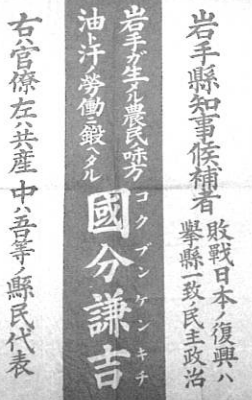 岩手縣知事候補者
敗戦日本ノ復興ハ
擧縣一致ノ民主政治
岩手ガ生メル農民ノ味方
油ト汗ノ勞働ニ鍛ヘタル
コクブンケンキチ
國分謙吉
右ハ官僚左ハ共産中ハ吾等ノ縣民代表